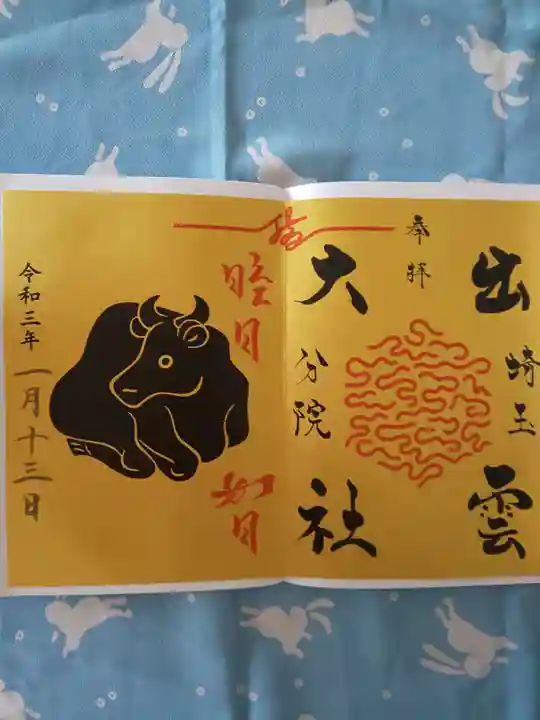 奉拝
出雲
埼玉
大社
分院
睦月
如月
令和三年
一月十三日